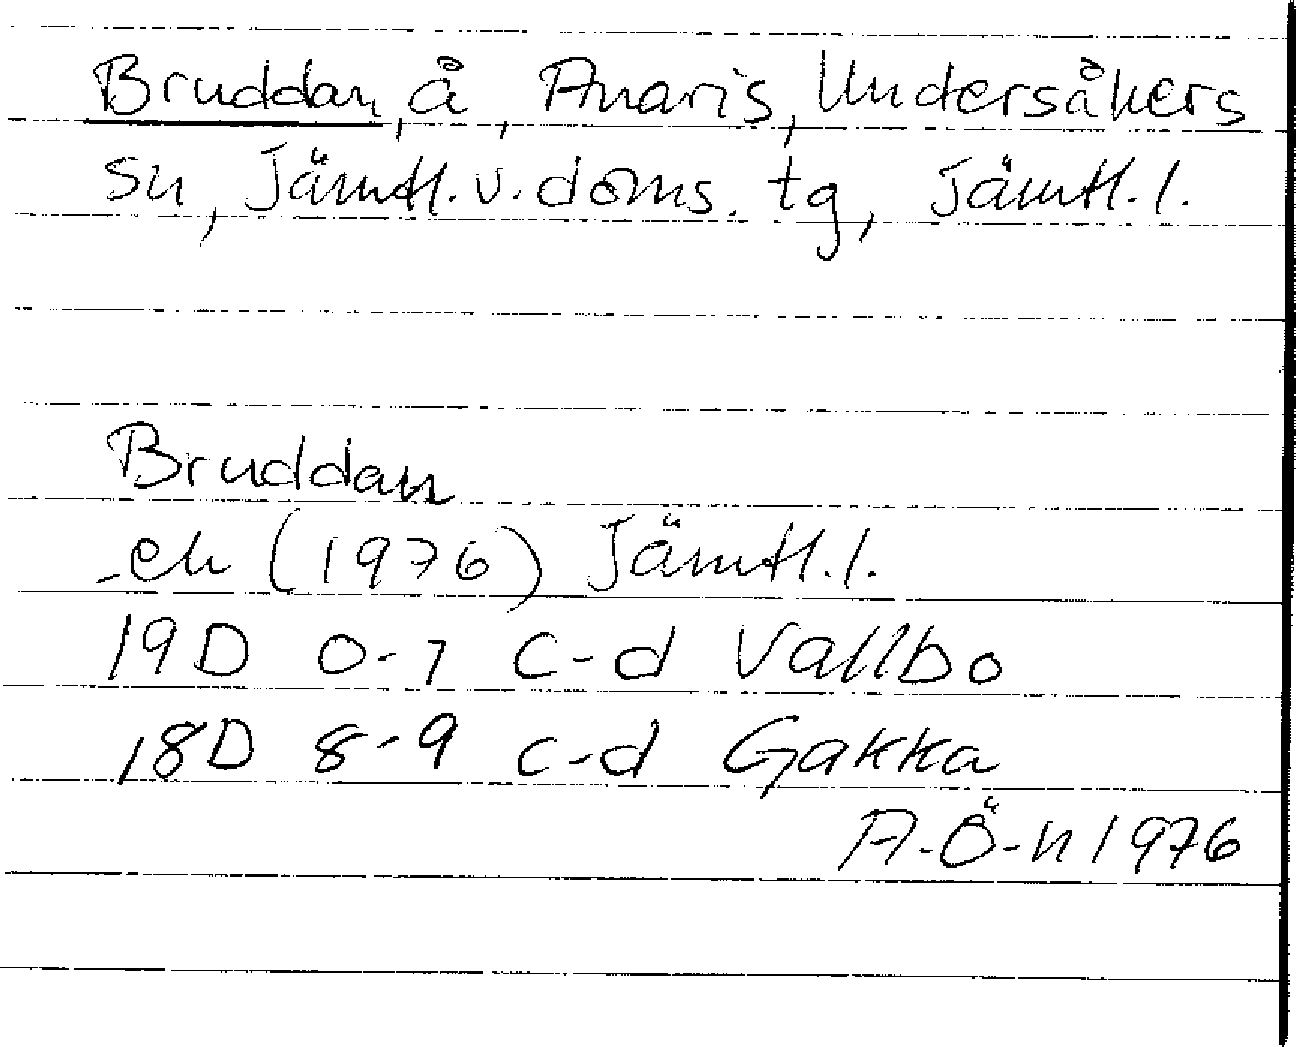 Bruddan, å, Anaris, Undersåkers
sn, Jämtl. v. doms. tg, Jämtl. l.
Bruddan
-ek (1976) Jämtl. l.
19D 0-1 c-d Vallbo
18D 8-9 c-d Gakka
A-Ö-n 1976